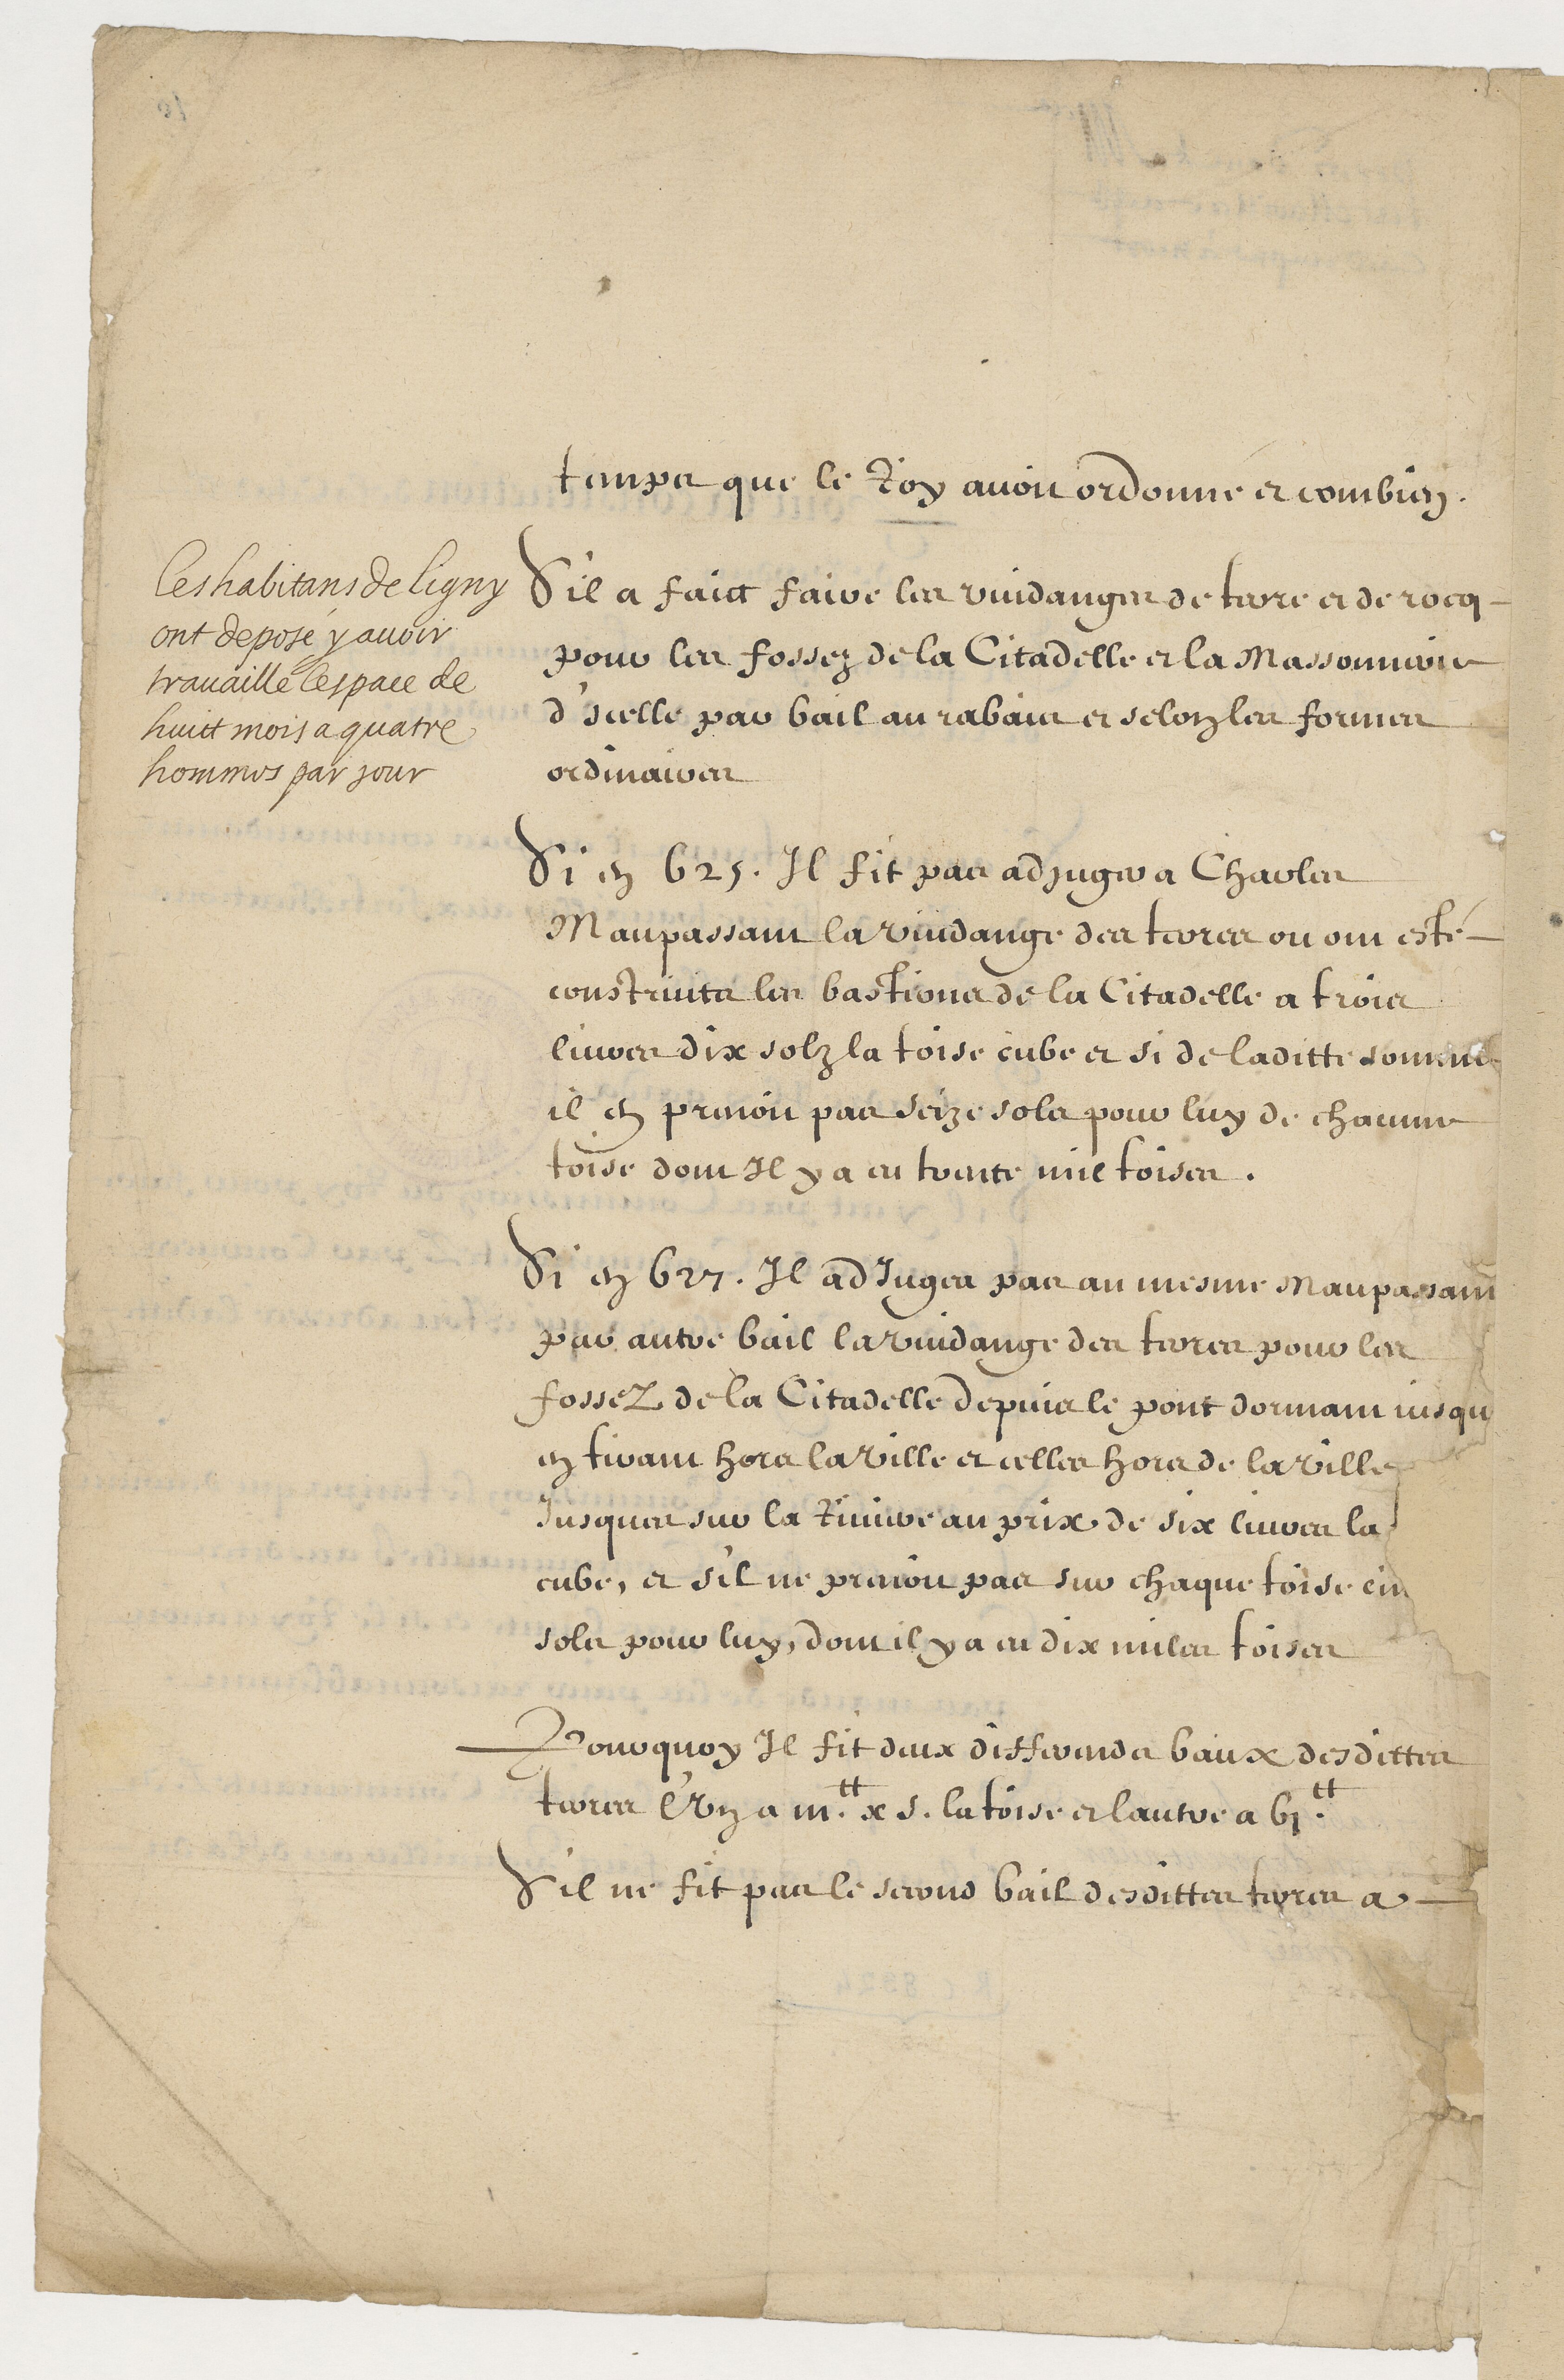 temps que le Roy auoit ordonné et combien.
Les habitans de Ligny
ont deposé y auoir
trauaillé l'espace de
huict mois a quatre
hommes par jour
S'il a faict faire les vuidanges de terre et de rocq
pour les fossez de la Citadelle et la Massonnerie
d'Icelle par bail au rabais et selon les formes
ordinaires
Si en 625. Il fit pas adjuger a Charles
Maupassant la vuidange des terres ou ont esté
construits les bastions de la Citadelle a trois
liures dix solz la toise cube et si de laditte somme
il en prenoit pas seize sols pour luy de chacune
toise dont Il y a eu trente mil toises.
Si en 627. Il adJugea pas au mesme Maupassant
par autre bail la vuidange des terres pour les
fossez de la Citadelle depuis le pont dormant iusqu
en tirant hors la ville et celles hors de la ville
Jusques sur la Riuiere au prix de six liures la
cube, et s'il ne prenoit pas sur chaque toise cin
sols pour luy, dont il y a eu dix miles toises
Pourquoy Il fit deux differends baux desdittes
terres l'Vn a iii.tt x s. la toise et lautre a vi.tt
S'il ne fit pas le second bail desdittes terres a